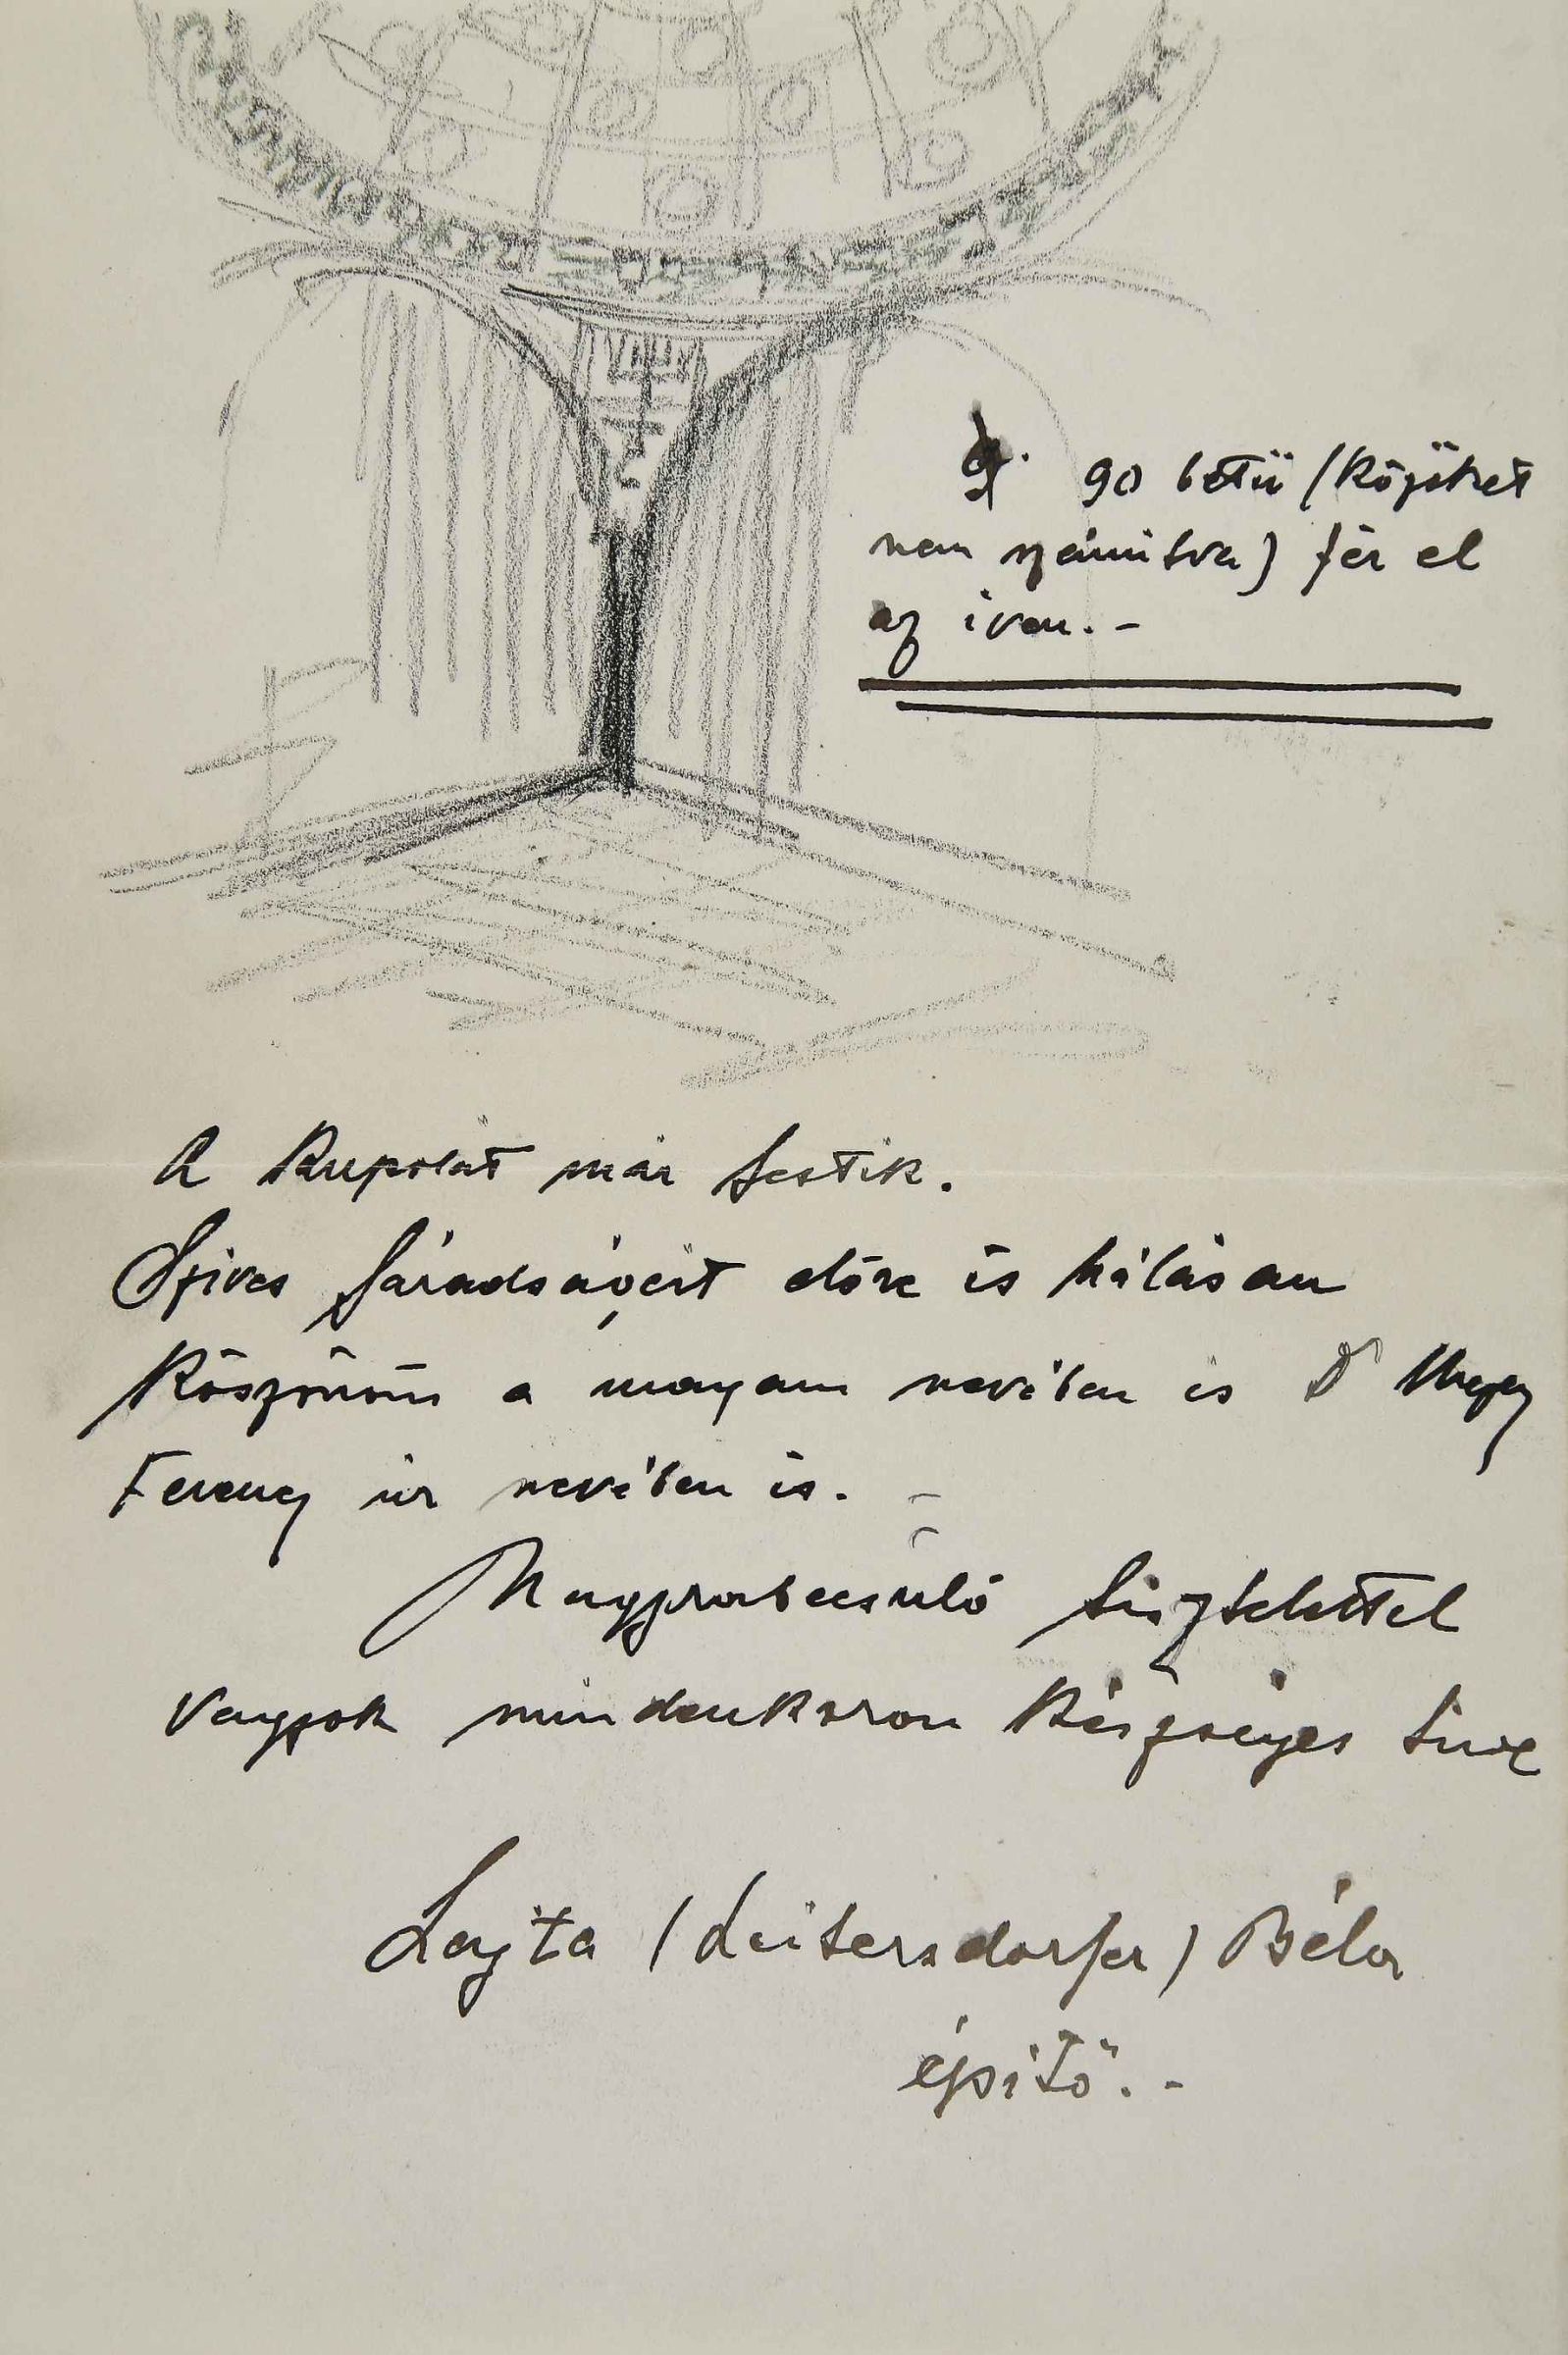 90 betü (közöket
nem számitva) fér el
az iven. -
A kupolát már festik.
Szives fáradságért előre is hálásan
köszönöm a magam nevében is Dr Mezey
Ferencz úr nevében is. -
Nagyrabecsülö tisztelettel
vagyok mindenkoron készséges hive
Lajta (Leitersdorfer) Béla
épitö. -